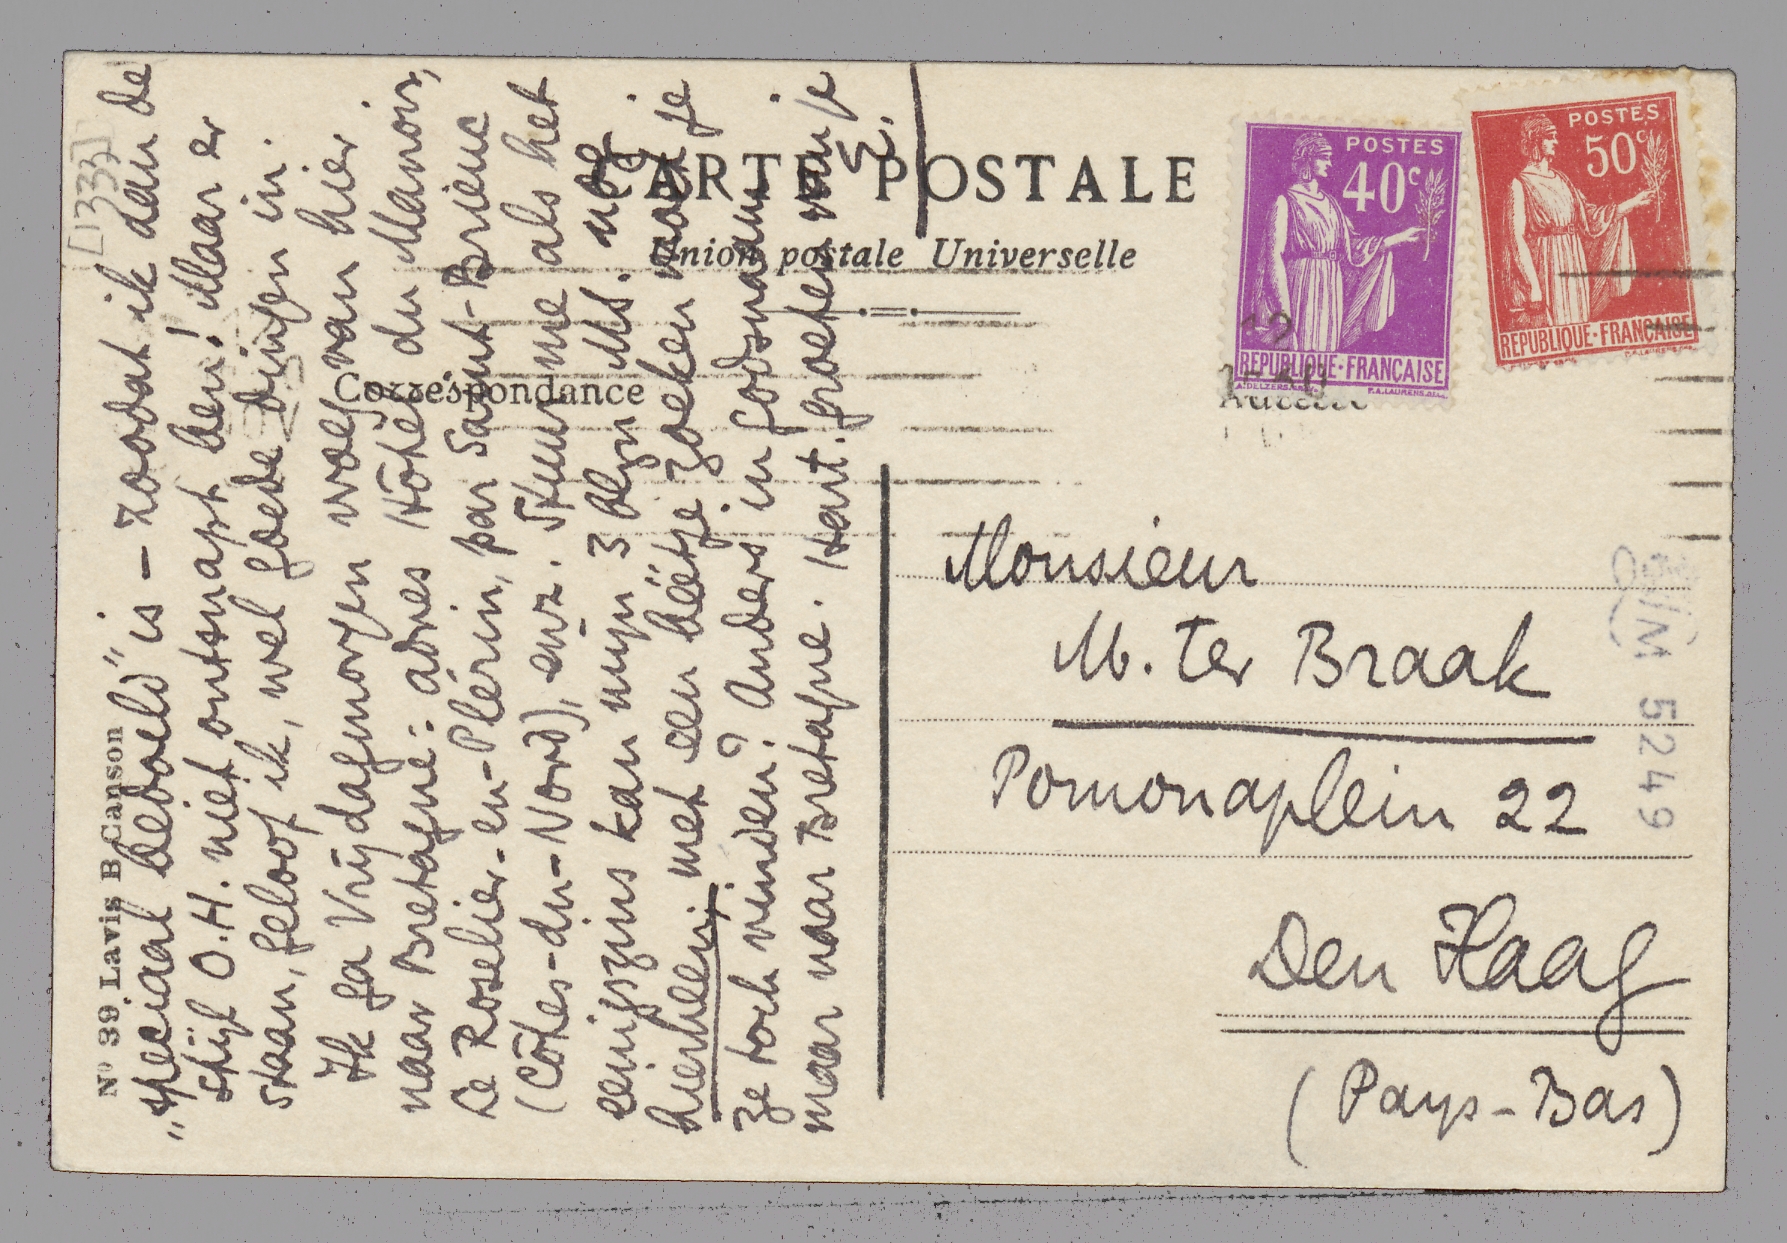 [1333]
„speciaal bedoeld" is – zoodat ik aan de
stijl O.H. niet ontsnapt ben! Maar er
staan, geloof ik, wel goede dingen in.
Ik ga Vrijdagmorgen weg van hier
naar Bretagne: adres Hôtel du Manoir,
Le Roselier-en-Plérin, par Saint-Brieuc
(Côtes-du-Nord), enz. Stuur me als het
eenigszins kan mijn 3 blzn Ms. nog
hierheen; met een beetje zoeken moet je
ze toch vinden? Anders in godsnaam
maar naar Bretagne. Hart. groeten van je
E.
Nº 39 Lavis B Canson
CARTE POSTALE
Union postale Universelle
Correspondance
POSTES
40c
REPUBLIQUE·FRANÇAISE
POSTES
50c
REPUBLIQUE·FRANÇAISE
Monsieur
M. ter Braak
Pomonaplein 22
Den Haag
(Pays-Bas)
5249